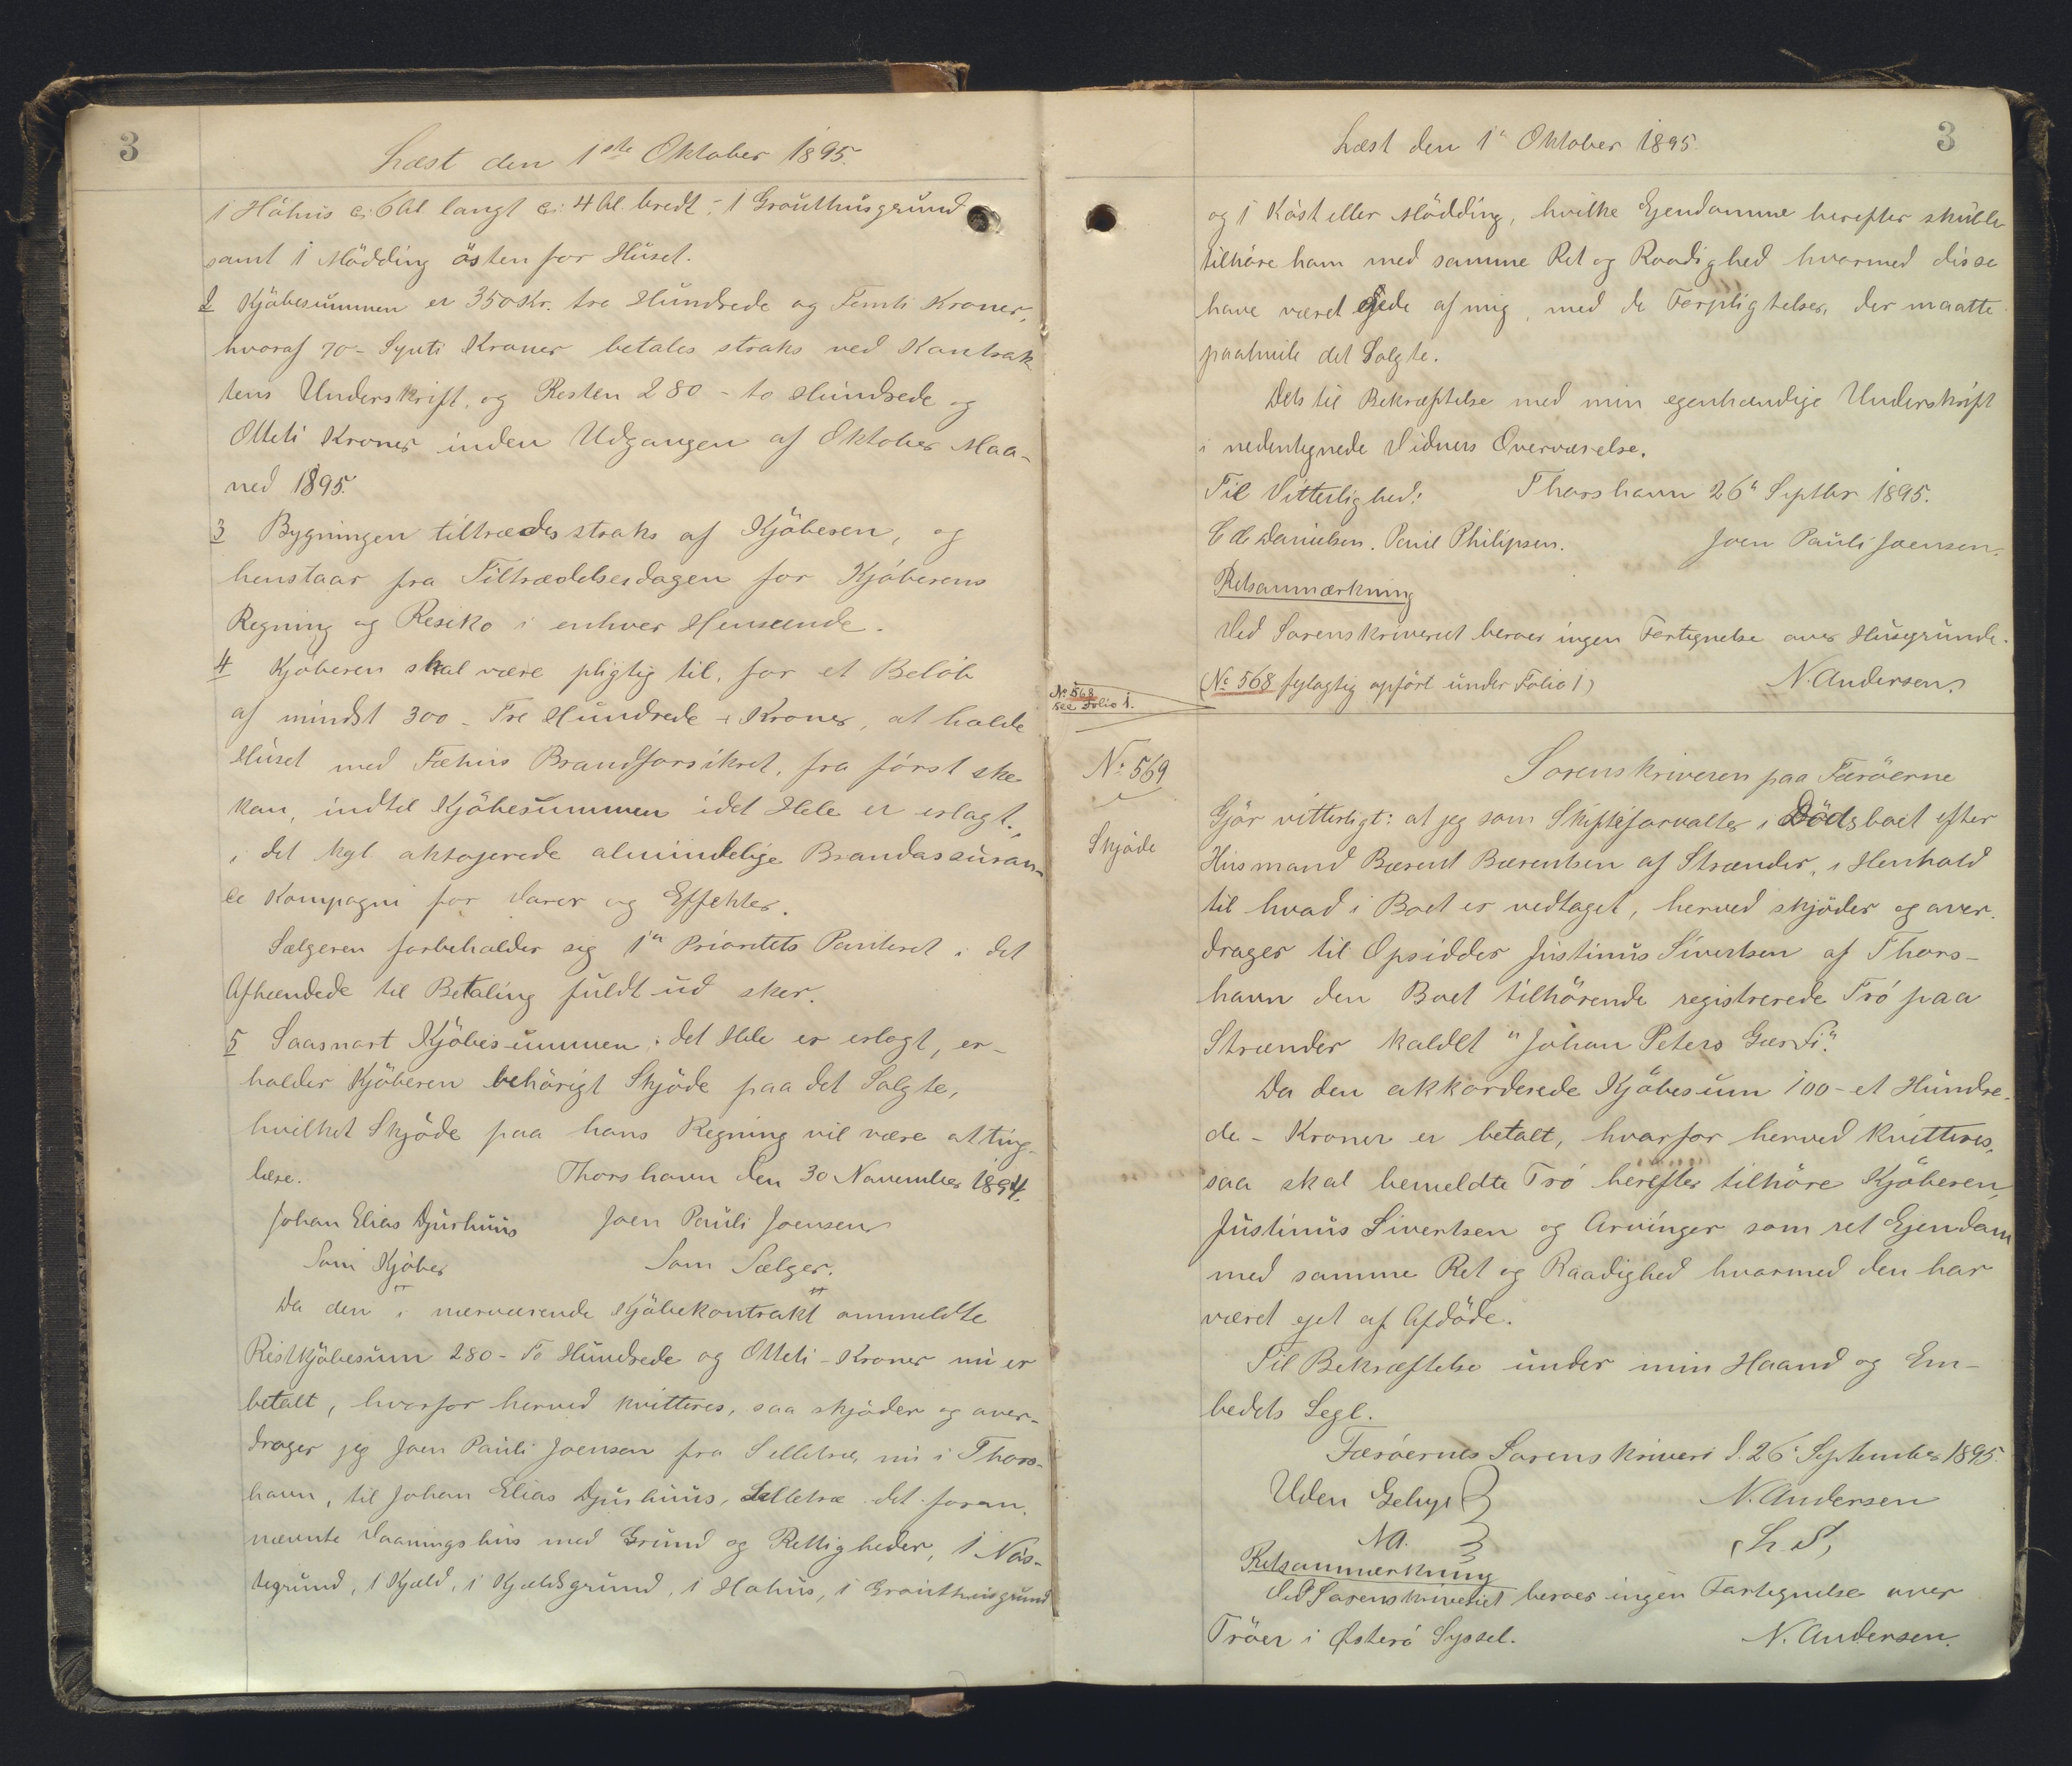 3
Læst den 1ste Oktober 1895.
i Höhus c: 6 Al langt c: 4 Al. bredt, i Grouthusgrund
samt i Mödding östen for Huset.
2 Kjöbesummen er 350 Kr. tre Hundrede og Femti Kroner,
hvoraf 70 - Sytti Kroner betales straks ved Kontrak
tens Underskrift, og Resten 280 - to Hundrede og
Otteti Kroner inden Udgangen af Oktober Maa-
ned 1895.
3 Bygningen tiltrædes straks af Kjöberen, og
henstaar fra Tiltrædelsesdagen for Kjöberens
Regning og Resiko i enhver Henseende.
4 Kjöberen skal være pligtig til, for et Belöb
af mindst 300 - Tre Hundrede - Kroner, at holde
Huset med Fæhus Brandforsikret, fra först ske
kan, indtil Kjöbesummen idet Hele er erlagt.,
i det kgl. oktojerede almindelige Brandassuran-
ce Kompagni for Varer og Effekter.
Sælgeren forbeholder sig 1ste Prioritets Panteret i det
Afhændede til Betaling fuldt ud sker.
5 Saasnart Kjöbesummen i det Hele er erlagt, er-
holder Kjöberen behörigt Skjöde paa det Solgte,
hvilket Skjöde paa hans Regning vil være at ting-
læse. Thorshavn den 30 November 1894.
Johan Elias Djurhuus Joen Pauli Joensen
Som Kjöber Som Sælger.
Da den "i nærværende Kjöbekontrakt" ommeldte
Restkjöbesum 280 - To Hundrede og Otteti - Kroner nu er
betalt, hvorfor herved kvitteres, saa skjöder og over-
drager jeg Joen Pauli Joensen fra Selletræ, nu i Thors-
havn, til Johan Elias Djurhuus, Selletræ det foran-
nævnte Vaaningshus med Grund og Rettigheder, i Nös-
tegrund, i Kjæld, i Kjældsgrund, i Hohus, i Grouthusgrund
3
Læst den 1ste Oktober 1895.
og i Köst eller Mödding, hvilke Ejendomme herefter skulle
tilhöre ham med samme Ret og Raadighed hvormed disse
have været ejede af mig, med de Forpligtelser, der maatte
paahvile det Solgte.
Dets til Bekræftelse med min egenhændige Underskrift
i nedentegnede Vidners Overværelse.
Til Vitterlighed: Thorshavn 26de Septbr 1895.
C E Danielsen. Poul Philipsen. Joen Pauli Joensen.
Retsanmærkning
Ved Sorenskriveriet beroer ingen Fortegnelse over Husgrunde.
(No 568 fejlagtig opfört under Folio 1) N. Andersen.
No 568
see Folio 1.
No 569
Skjöde
Sorenskriveren paa Færöerne
Gjör vitterligt: at jeg som Skifteforvalter i Dödsboet efter
Husmand Bærent Bærentsen af Strænder, i Henhold
til hvad i Boet er vedtaget, herved skjöder og over-
drager til Opsidder Justinus Sivertsen af Thors-
havn den Boet tilhörende registrerede Trö paa
Strænder kaldet "Johan Peters Gærdi".
Da den akkorderede Kjöbesum 100 - et Hundre-
de - Kroner er betalt, hvorfor herved kvitteres,
saa skal bemeldte Trö herefter tilhöre Kjöberen,
Justinus Sivertsen og Arvinger som ret Ejendom
med samme Ret og Raadighed hvormed den har
været ejet af Afdöde.
Til Bekræftelse under min Haand og Em-
bedets Segl.
Færöernes Sorenskriveri d. 26de September 1895.
Uden Gebyr N. Andersen
NA. (L.S.)
Retsanmærkning
Ved Sorenskriveriet beroer ingen Fortegnelse over
Tröer i Österö Syssel. N. Andersen.